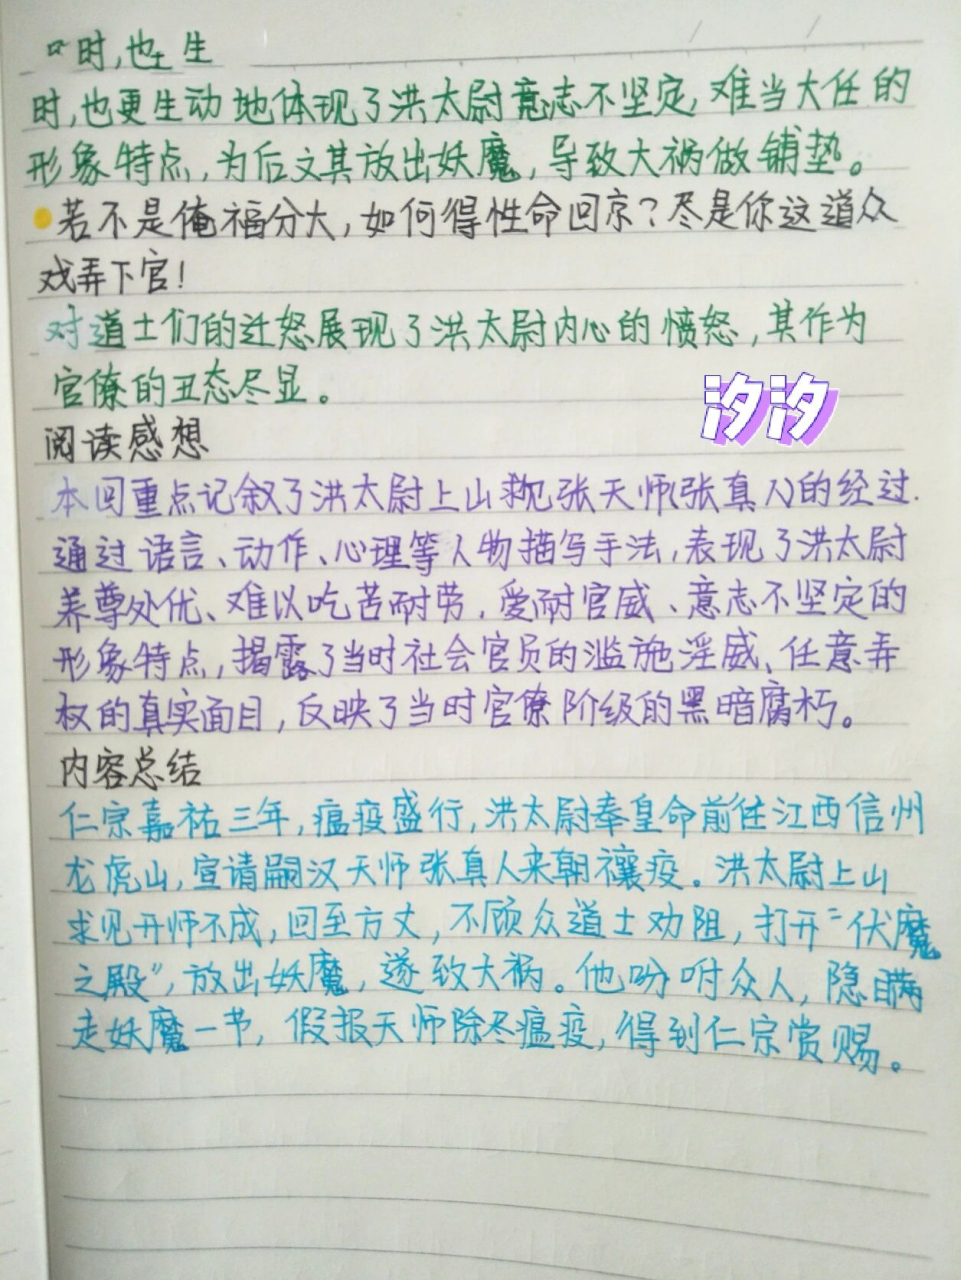 时,也生
时,也更生动地体现了洪太尉意志不坚定,难当大任的
形象特点,为后文其放出妖魔,导致大祸做铺垫。
若不是俺福分大,如何得性命回京?尽是你这道众
戏弄下官!
对道士们的迁怒展现了洪太尉内心的愤怒,其作为
官僚的丑态尽显。
汐汐
阅读感想
本回重点记叙了洪太尉上山求见张天师(张真人)的经过.
通过语言、动作、心理等人物描写手法,表现了洪太尉
养尊处优、难以吃苦耐劳,爱耐官威、意志不坚定的
形象特点,揭露了当时社会官员的滥施淫威、任意弄
权的真实面目,反映了当时官僚阶级的黑暗腐朽。
内容总结
仁宗嘉祐三年,瘟疫盛行,洪太尉奉皇命前往江西信州
龙虎山,宣请嗣汉天师张真人来朝禳疫。洪太尉上山
求见天师不成,回至方丈,不顾众道士劝阻,打开“伏魔
之殿”,放出妖魔,遂致大祸。他吩咐众人,隐瞒
走妖魔一节,假报天师除尽瘟疫,得到仁宗赏赐。